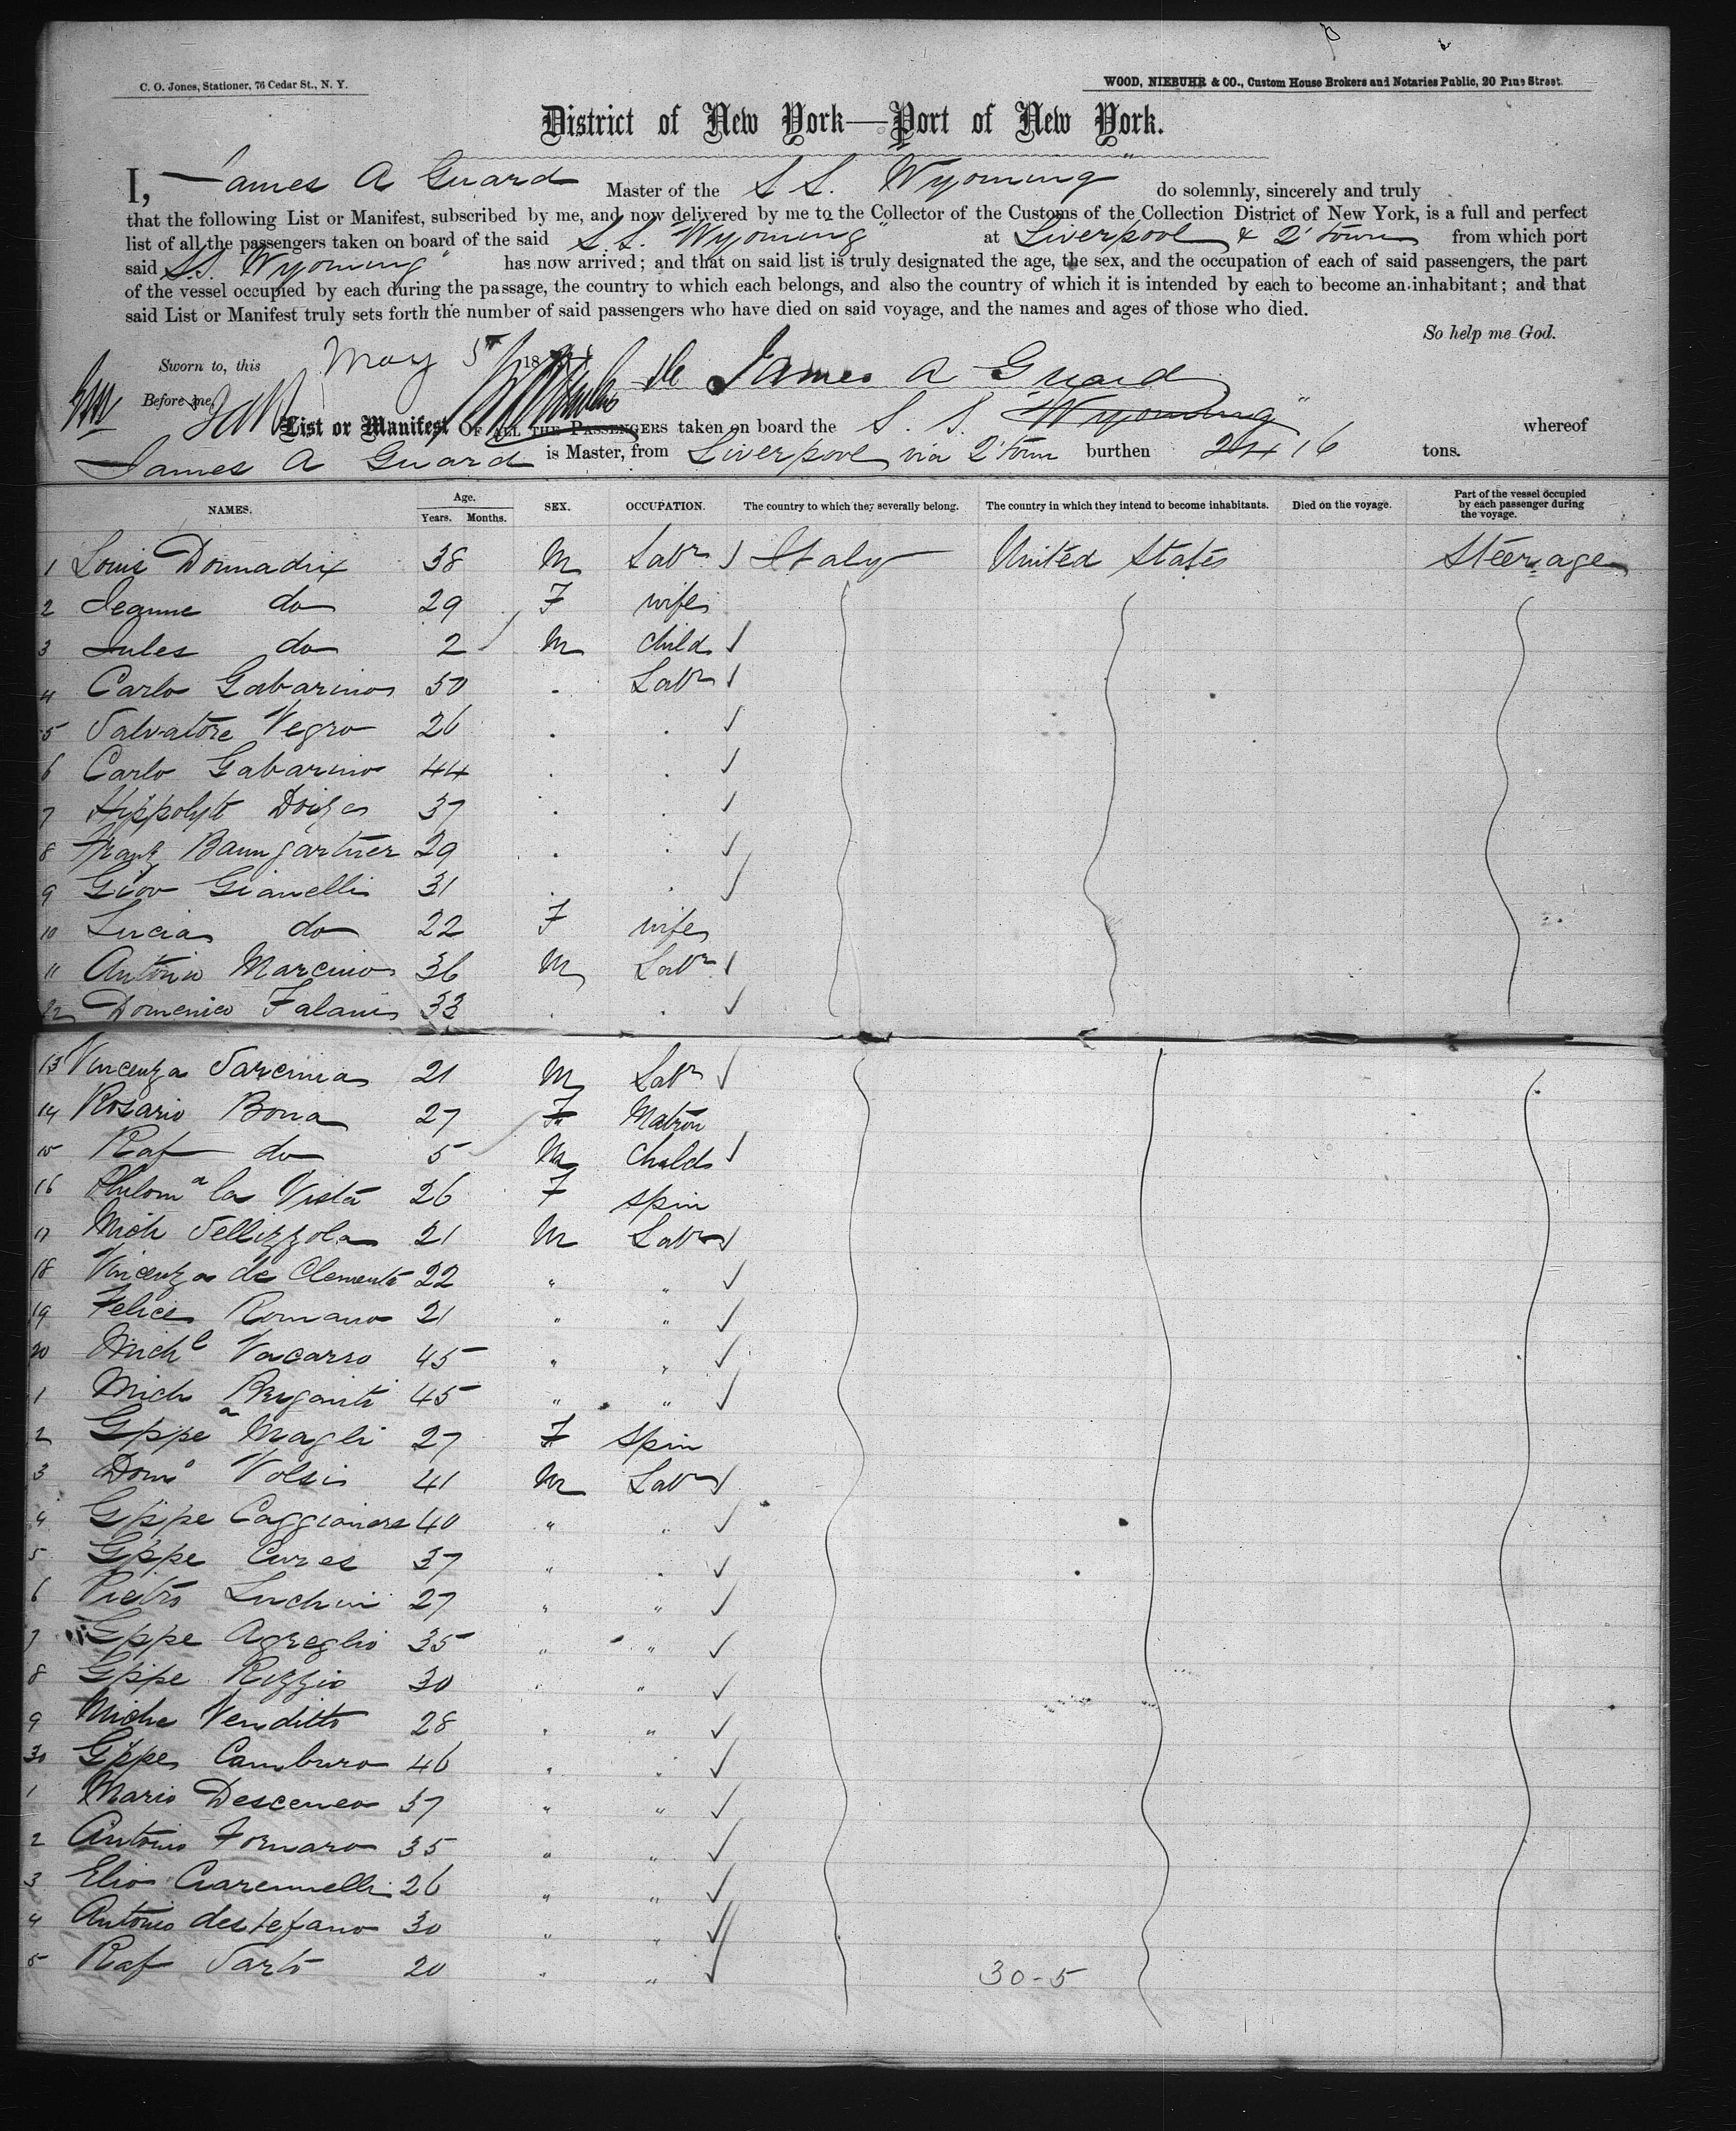 C. O. Jones, Stationer, 76 Cedar St., N. Y.
WOOD, NIEBUHR & CO., Custom House Brokers and Notaries Public, 20 Pine Street.
District of New York—Port of New York.
I, James A Guard Master of the S S. Wyoming" do solemnly, sincerely and truly
that the following List or Manifest, subscribed by me, and now delivered by me to the Collector of the Customs of the Collection District of New York, is a full and perfect
list of all the passengers taken on board of the said S.S. "Wyoming" at Liverpool & Q'town from which port
said S.S. Wyoming" has now arrived; and that on said list is truly designated the age, the sex, and the occupation of each of said passengers, the part
of the vessel occupied by each during the passage, the country to which each belongs, and also the country of which it is intended by each to become an inhabitant; and that
said List or Manifest truly sets forth the number of said passengers who have died on said voyage, and the names and ages of those who died.
So help me God.
Sworn to, this May 5 18
James A Guard
Before me,
List or Manifest OF ALL THE PASSENGERS taken on board the S. S. "Wyoming" whereof
James A Guard is Master, from Liverpool via Q'town burthen 2416 tons.
NAMES. Age. Years. Months. SEX. OCCUPATION. The country to which they severally belong. The country in which they intend to become inhabitants. Died on the voyage. Part of the vessel occupied by each passenger during the voyage.
1 Louis Donnadix 38 M Labr Italy United States Steerage
2 Jeanne do 29 F wife
3 Jules do 2 M child
4 Carlo Gabarino 50 . Labr
5 Salvatore Negro 26 . .
6 Carlo Gabarino 44 . .
7 Hippolyte 37 . .
8 Frantz Baumgartner 29 . .
9 Giov Gianelli 31 . .
10 Lucia do 22 F wife
11 Antonio Marcino 36 M Labr
12 Domenico Falani 33 . .
13 Vincenza Sarcinia 21 M Labr
14 Rosario Bona 27 F Matron
15 Raf do 5 M Child
16 Philom a la Vista 26 F spin
17 Mich Sellizzola 21 M Labr
18 Vincenza de Clemente 22 " "
19 Felice Romano 21 " "
20 Michl Vacarro 45 " "
1 Mich Briganti 45 " "
2 Gppe a Magli 27 F spin
3 Domo Volsi 41 M Labr
4 Gppe Caggianere 40 " "
5 Gppe Cures 37 " "
6 Pietro Luchini 27 " "
7 Gppe Agreglio 35 " "
8 Gppe Rizzio 30 " "
9 Miche Venditto 28 " "
30 Gppe Camburo 46 " "
1 Mario Desceneo 37 " "
2 Antonio Fornaro 35 " "
3 Elio Ciarennelli 26 " "
4 Antonio destefano 30 " "
5 Raf Sarto 20 " "
30-5